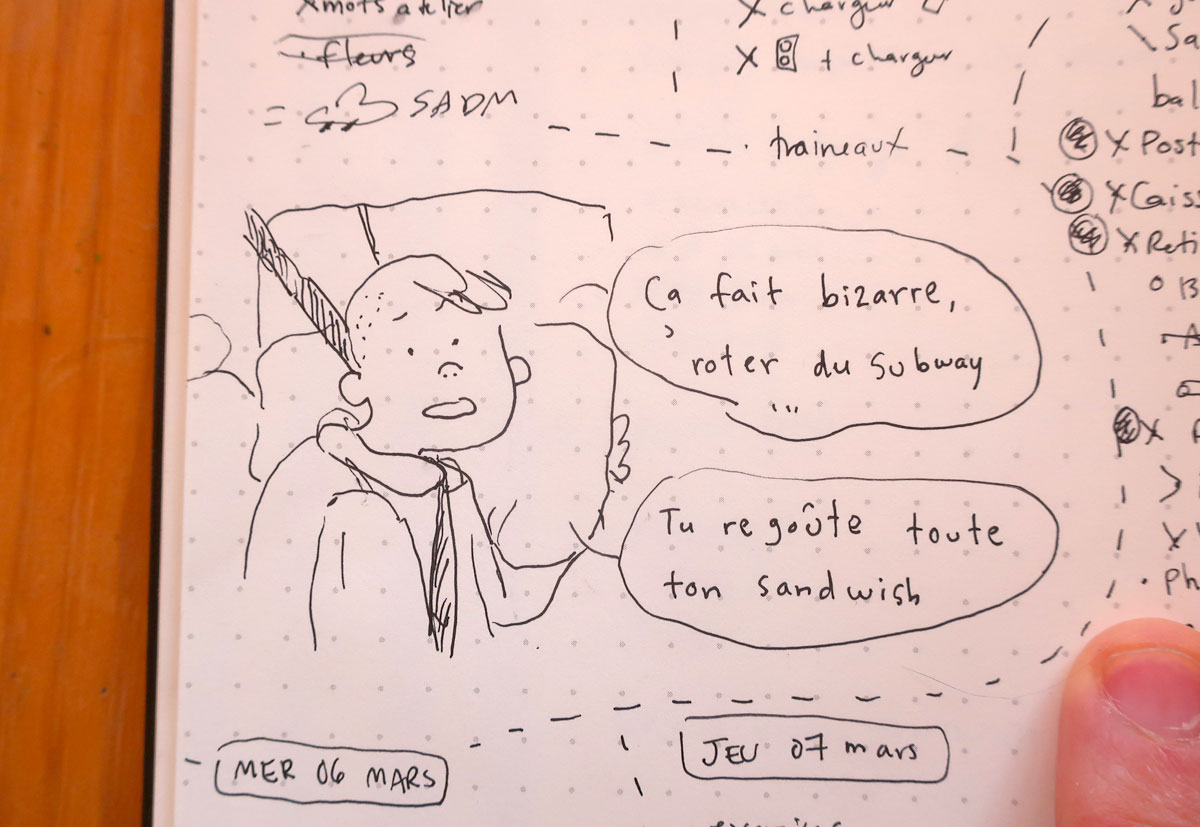 x mots atelier
fleurs
= SADM
x chargeur
x + chargeur
traineaux
Sa
bal
x Post
x Caiss
x Reti
Ça fait bizarre,
roter du subway
...
Tu regoûte toute
ton sandwish
Ph
MER 06 MARS
JEU 07 mars